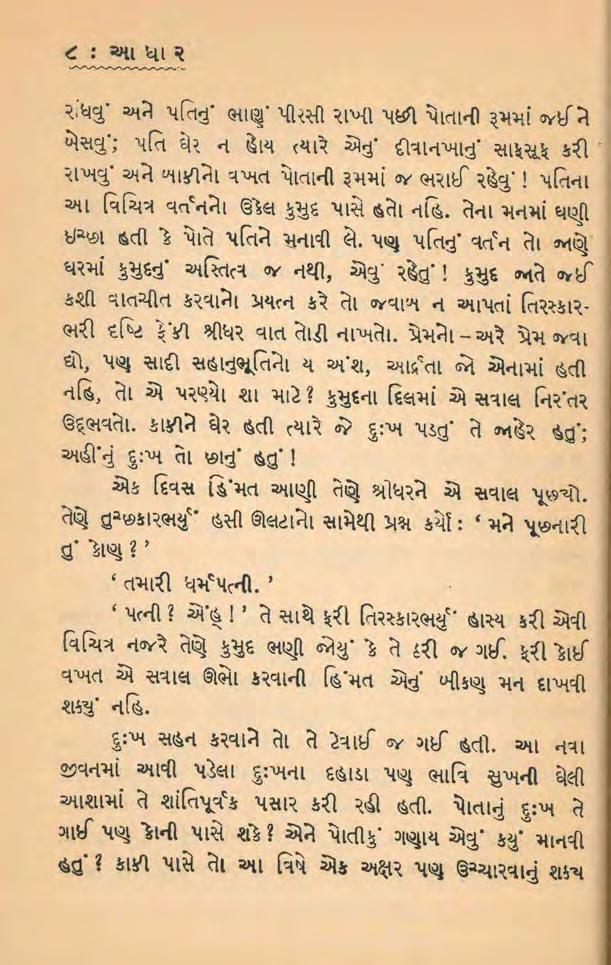 ૮ : આ ધા ર
રાંધવું અને પતિનું ભાણું પીરસી રાખી પછી પોતાની રૂમમાં જઈ ને
બેસવું; પતિ ઘેર ન હોય ત્યારે એનું દીવાનખાનું સાફસૂફ કરી
રાખવું અને બાકીનો વખત પોતાની રૂમમાં જ ભરાઈ રહેવું ! પતિના
આ વિચિત્ર વર્તનનો ઉકેલ કુમુદ પાસે હતો નહિ. તેના મનમાં ઘણી
ઇચ્છા હતી કે પોતે પતિને મનાવી લે. પણ પતિનું વર્તન તો જાણે
ઘરમાં કુમુદનું અસ્તિત્વ જ નથી, એવું રહેતું ! કુમુદ જાતે જઈ
કશી વાતચીત કરવાનો પ્રયત્ન કરે તો જવાબ ન આપતાં તિરસ્કાર-
ભરી દૃષ્ટિ ફેંકી શ્રીધર વાત તોડી નાખતો. પ્રેમનો – અરે પ્રેમ જવા
દ્યો, પણ સાદી સહાનુભૂતિનો ય અંશ, આર્દ્રતા જો એનામાં હતી
નહિ, તો એ પરણ્યો શા માટે ? કુમુદના દિલમાં એ સવાલ નિરંતર
ઉદ્દભવતો. કાકીને ઘેર હતી ત્યારે જે દુઃખ પડતું તે જાહેર હતું;
અહીંનું દુઃખ તો છાનું હતું !
એક દિવસ હિંમત આણી તેણે શ્રીધરને એ સવાલ પૂછ્યો.
તેણે તુચ્છકારભર્યું હસી ઊલટાનો સામેથી પ્રશ્ન કર્યો : ‘ મને પૂછનારી
તું કોણ ? ’
‘ તમારી ધર્મપત્ની. ’
‘ પત્ની ? એંહ્ ! ’ તે સાથે ફરી તિરસ્કારભર્યું હાસ્ય કરી એવી
વિચિત્ર નજરે તેણે કુમુદ ભણી જોયું કે તે ઠરી જ ગઈ. ફરી કોઈ
વખત એ સવાલ ઊભો કરવાની હિંમત એનું બીકણ મન દાખવી
શક્યું નહિ.
દુઃખ સહન કરવાને તો તે ટેવાઈ જ ગઈ હતી. આ નવા
જીવનમાં આવી પડેલા દુઃખના દહાડા પણ ભાવિ સુખની ઘેલી
આશામાં તે શાંતિપૂર્વક પસાર કરી રહી હતી. પોતાનું દુઃખ તે
ગાઈ પણ કોની પાસે શકે ? એને પોતીકું ગણાય એવું કયું માનવી
હતું ? કાકી પાસે તો આ વિષે એક અક્ષર પણ ઉચ્ચારવાનું શક્ય